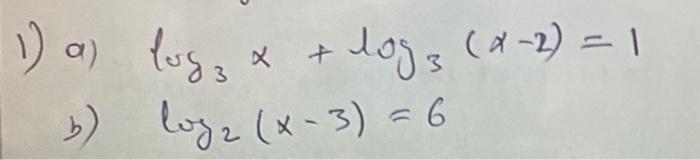 1) a) log₃ x + log₃ (x-2) = 1
b) log₂ (x-3) = 6